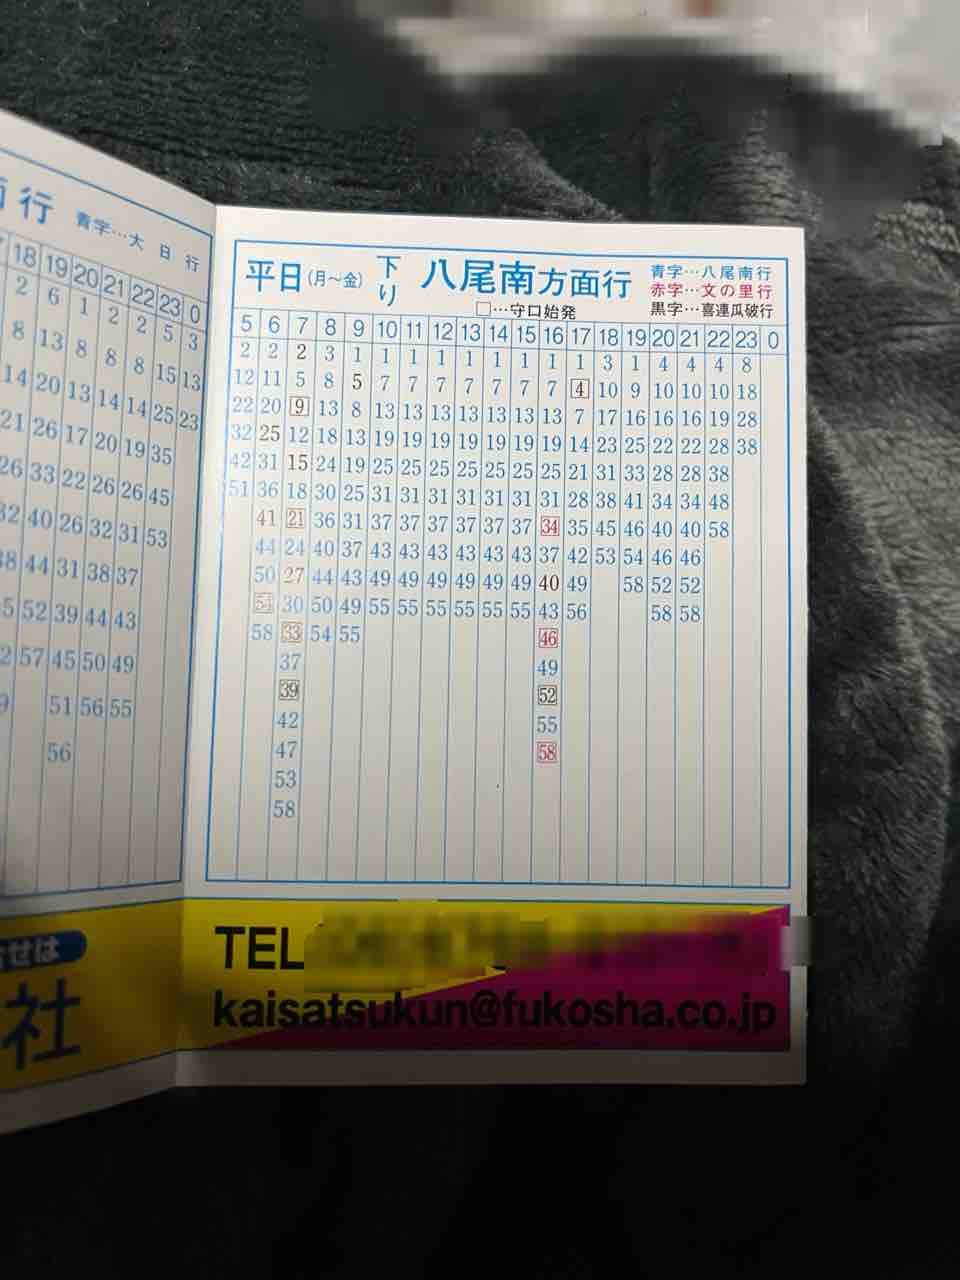 行 青字…大 日 行
18 19 20 21 22 23 0
2 6 1 2 2 5 3
8 13 8 8 8 15 13
14 20 13 14 14 25 23
21 26 17 20 19 35
26 33 22 26 26 45
32 40 26 32 31 53
38 44 31 38 37
52 39 44 43
57 45 50 49
51 56 55
56
せは
社
平日(月〜金) 下り 八尾南方面行
□…守口始発
青字…八尾南行
赤字…文の里行
黒字…喜連瓜破行
5 6 7 8 9 10 11 12 13 14 15 16 17 18 19 20 21 22 23 0
2 2 2 3 1 1 1 1 1 1 1 1 1 3 1 4 4 4 8
12 11 5 8 5 7 7 7 7 7 7 7 4 10 9 10 10 10 18
22 20 9 13 8 13 13 13 13 13 13 13 7 17 16 16 16 19 28
32 25 12 18 13 19 19 19 19 19 19 19 14 23 25 22 22 28 38
42 31 15 24 19 25 25 25 25 25 25 25 21 31 33 28 28 38
51 36 18 30 25 31 31 31 31 31 31 31 28 38 41 34 34 48
41 21 36 31 37 37 37 37 37 37 34 35 45 46 40 40 58
44 24 40 37 43 43 43 43 43 43 37 42 53 54 46 46
50 27 44 43 49 49 49 49 49 49 40 49 58 52 52
54 30 50 49 55 55 55 55 55 55 43 56 58 58
58 33 54 55 46
37 49
39 52
42 55
47 58
53
58
TEL
kaisatsukun@fukosha.co.jp